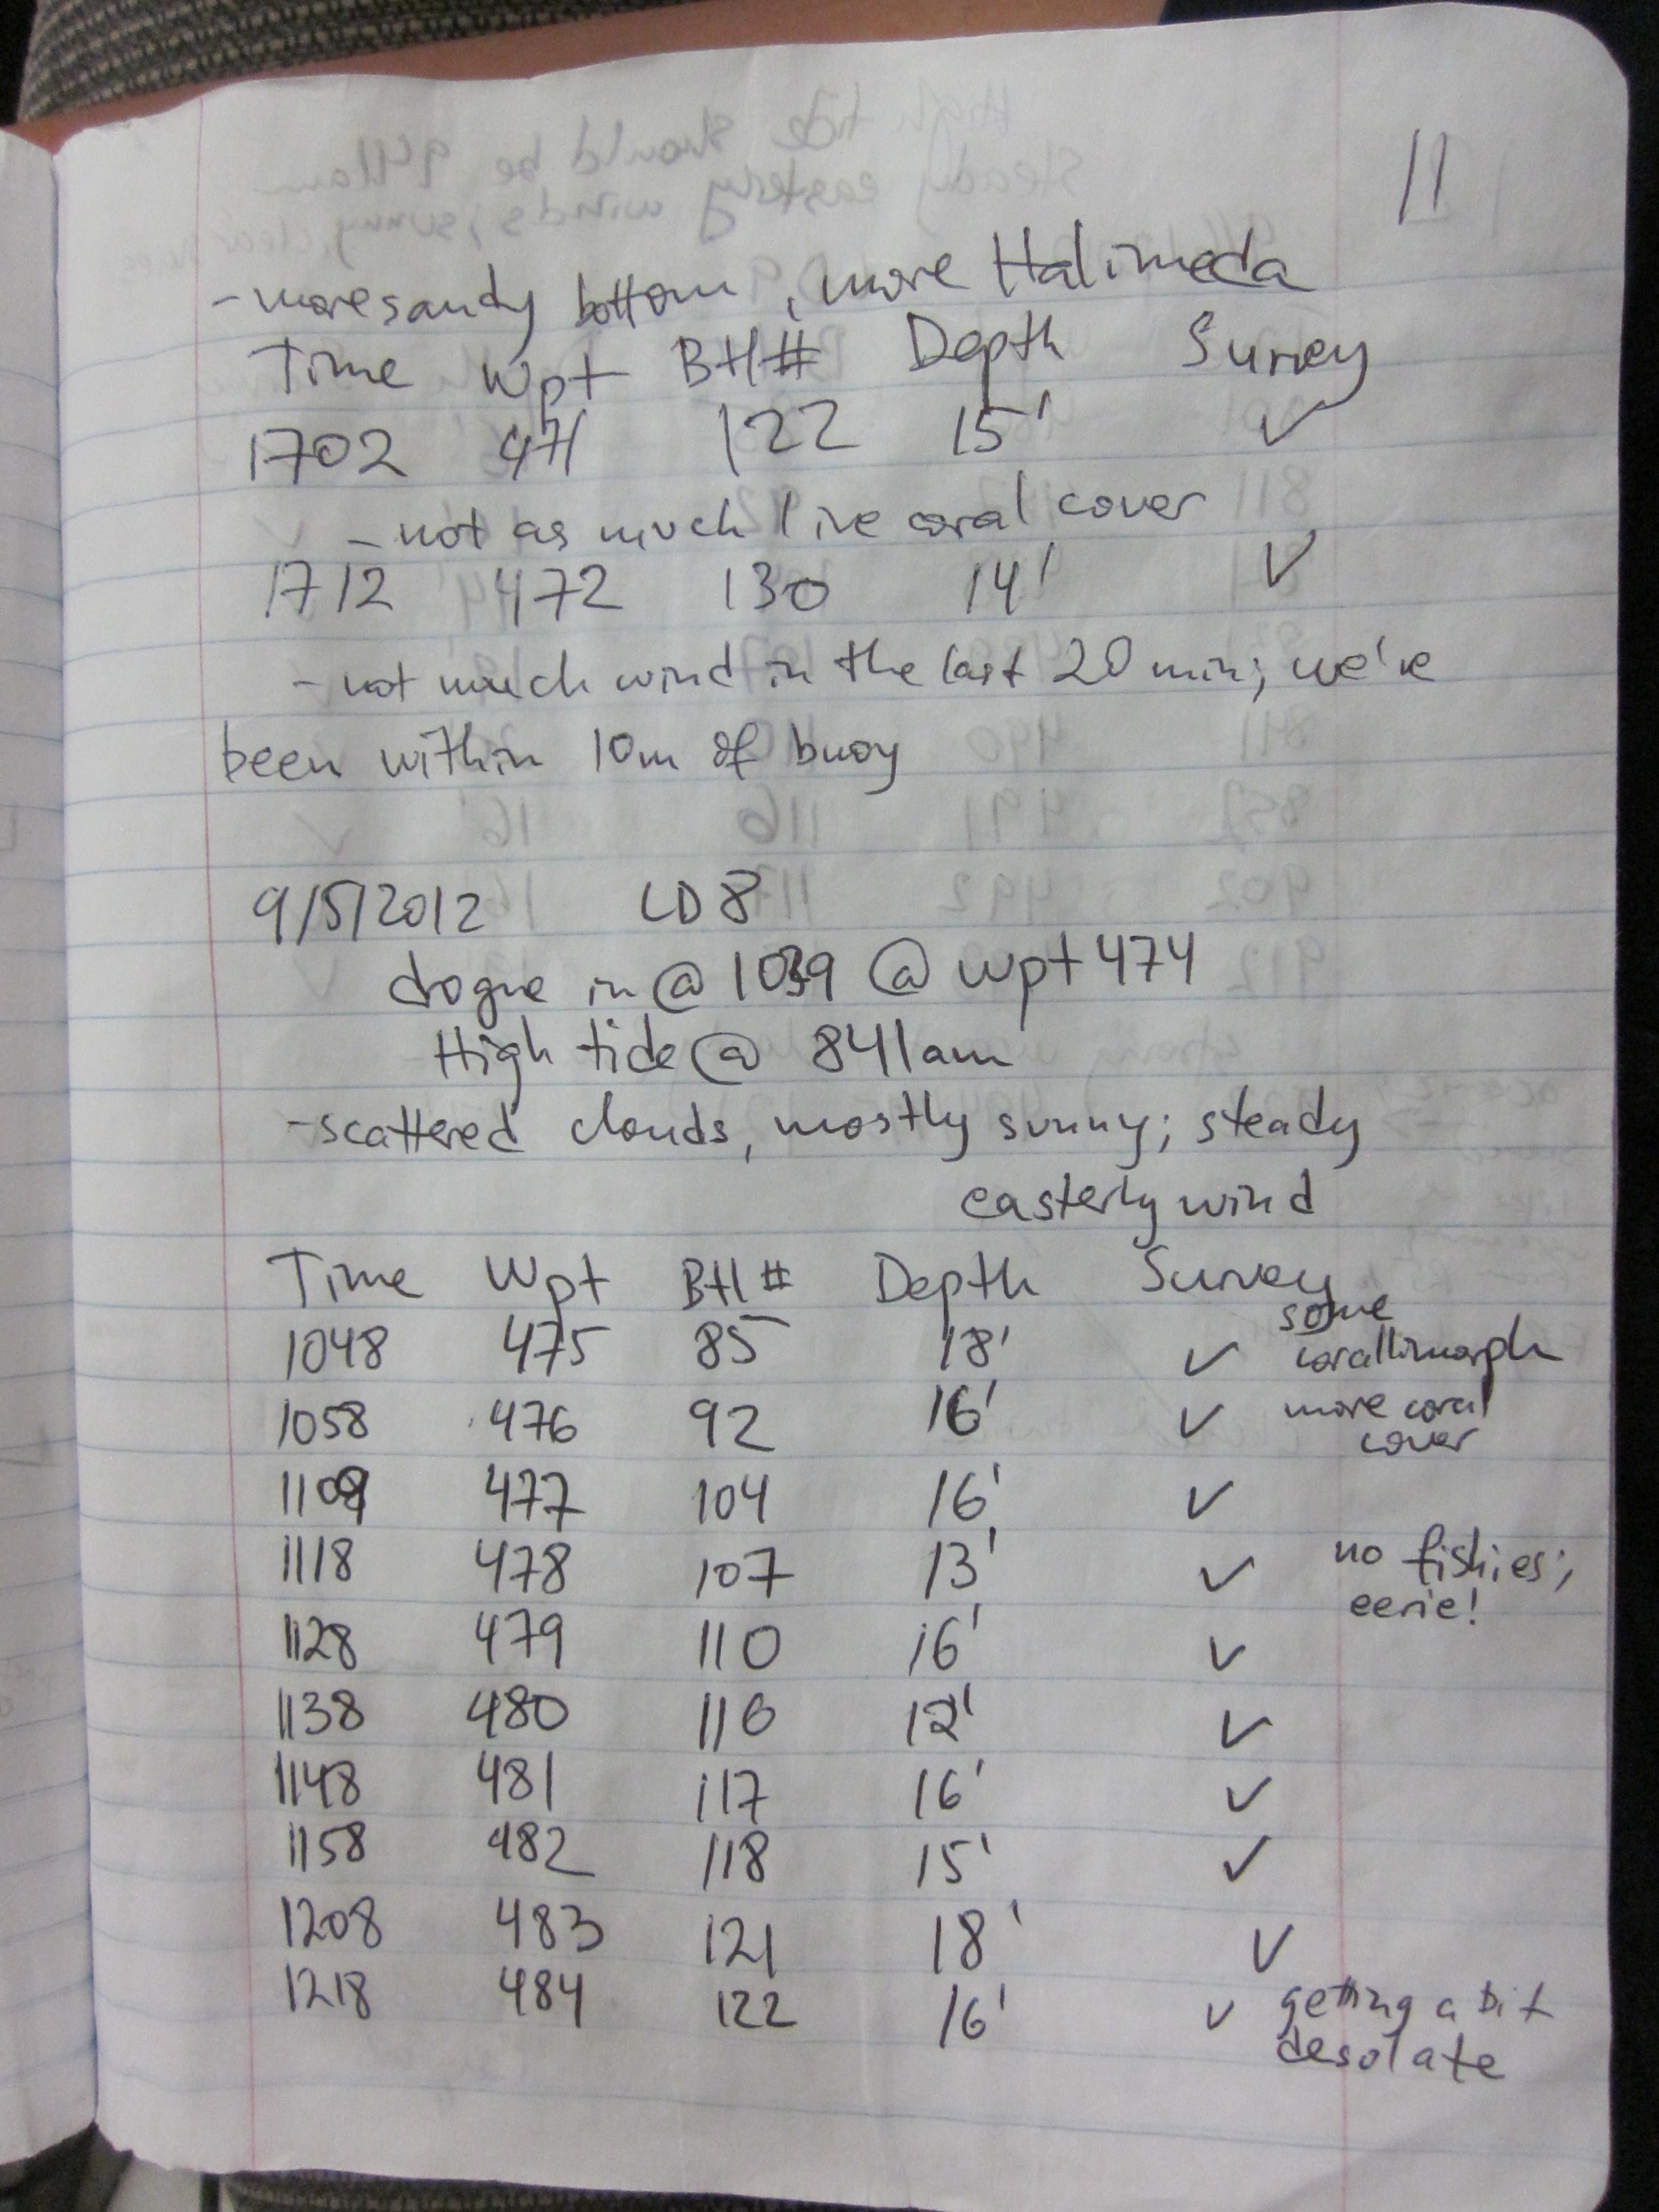 11
- more sandy bottom, more Halimeda
Time Wpt Btl# Depth Survey
1702 471 122 15' ✓
- not as much live coral cover
1712 472 130 14' ✓
- not much wind in the last 20 min; we've
been within 10m of buoy
9/5/2012 LD8
drogue in @ 1039 @ wpt 474
High tide @ 841am
- scattered clouds, mostly sunny; steady
easterly wind
Time Wpt Btl # Depth Survey
1048 475 85 18' ✓ some corallimorph
1058 476 92 16' ✓ more coral cover
1109 477 104 16' ✓
1118 478 107 13' ✓ no fishies; eerie!
1128 479 110 16' ✓
1138 480 116 12' ✓
1148 481 117 16' ✓
1158 482 118 15' ✓
1208 483 121 18' ✓
1218 484 122 16' ✓ getting a bit desolate